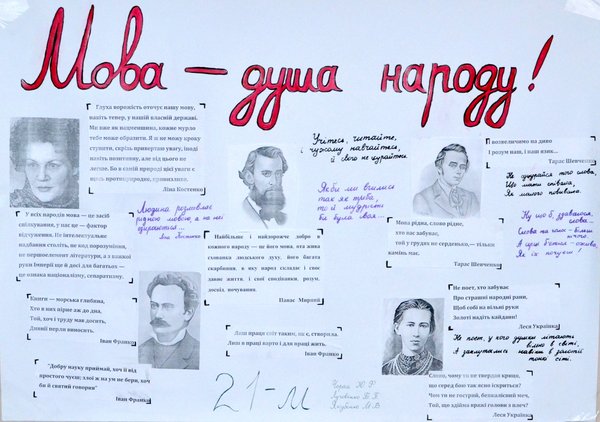 Мова – душа народу!
Глуха ворожість оточує нашу мову,
навіть тепер, у нашій власній державі.
Ми вже як нацменшина, кожне мурло
тебе може образити. Я не можу кроку
ступити, скрізь привертаю увагу, іноді
навіть позитивну, але від цього не
легше. Бо в самій природі цієї уваги є
щось протиприродне, принизливе.
Ліна Костенко
У усіх народів мова — це засіб
спілкування, у нас це — фактор
відчуження. Не інтелектуальне
надбання століть, не код порозуміння,
не першоелемент літератури, а з важкої
руки Імперії ще й досі для багатьох —
це ознака націоналізму, сепаратизму.
Людина розмовляє
рідною мовою, а на неї
озираються...
Ліна Костенко
Книги — морська глибина,
Хто в них пірне аж до дна,
Той, хоч і труду мав досить,
Дивнії перли виносить.
Іван Франко
"Добру науку приймай, хоч її від
простого чуєш; злої ж на ум не бери, хоч
би й святий говорив"
Іван Франко
Учітесь, читайте,
і чужому навчайтесь,
й свого не цурайтесь
Якби ви вчились
так як треба,
то й мудрість
би була своя...
Найбільше і найдорожче добро в
кожного народу — це його мова, ота жива
схованка людського духу, його багата
скарбниця, в яку народ складає і своє
давнє життя, і свої сподіванки, розум,
досвід, почування.
Панас Мирний
Лиш праця світ таким, як є, створила,
Лиш в праці варто і для праці жить.
Іван Франко
21-м
Якубенко М В
Возвеличимо на диво
І розум наш, і наш язик...
Тарас Шевченко
Не цурайтеся того слова,
Що мати співала,
Як малого повивала.
Ну що б, здавалося,
слова...
Слова та голос – більш
нічого.
А серце б'ється – ожива,
Як їх почує!
Мова рідна, слово рідне,
хто вас забуває,
той у грудях не серденько,— тільки
камінь має.
Тарас Шевченко
Не поет, хто забуває
Про страшні народні рани,
Щоб собі на вільні руки
Золоті надіть кайдани!
Леся Українка
Не поет, у кого думки літають
вільно в світі,
А заплутались навіки в золотії
тонкі сіті.
Слово, чому ти не твердая криця,
що серед бою так ясно іскриться?
Чом ти не гострий, безжалісний меч,
Той, що здійма вражі голови з плеч?
Леся Українка